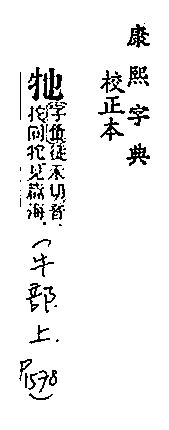 康熙字典
校正本
牠
字彙徒禾切音
同 見篇海
(牛部上.
P1578)